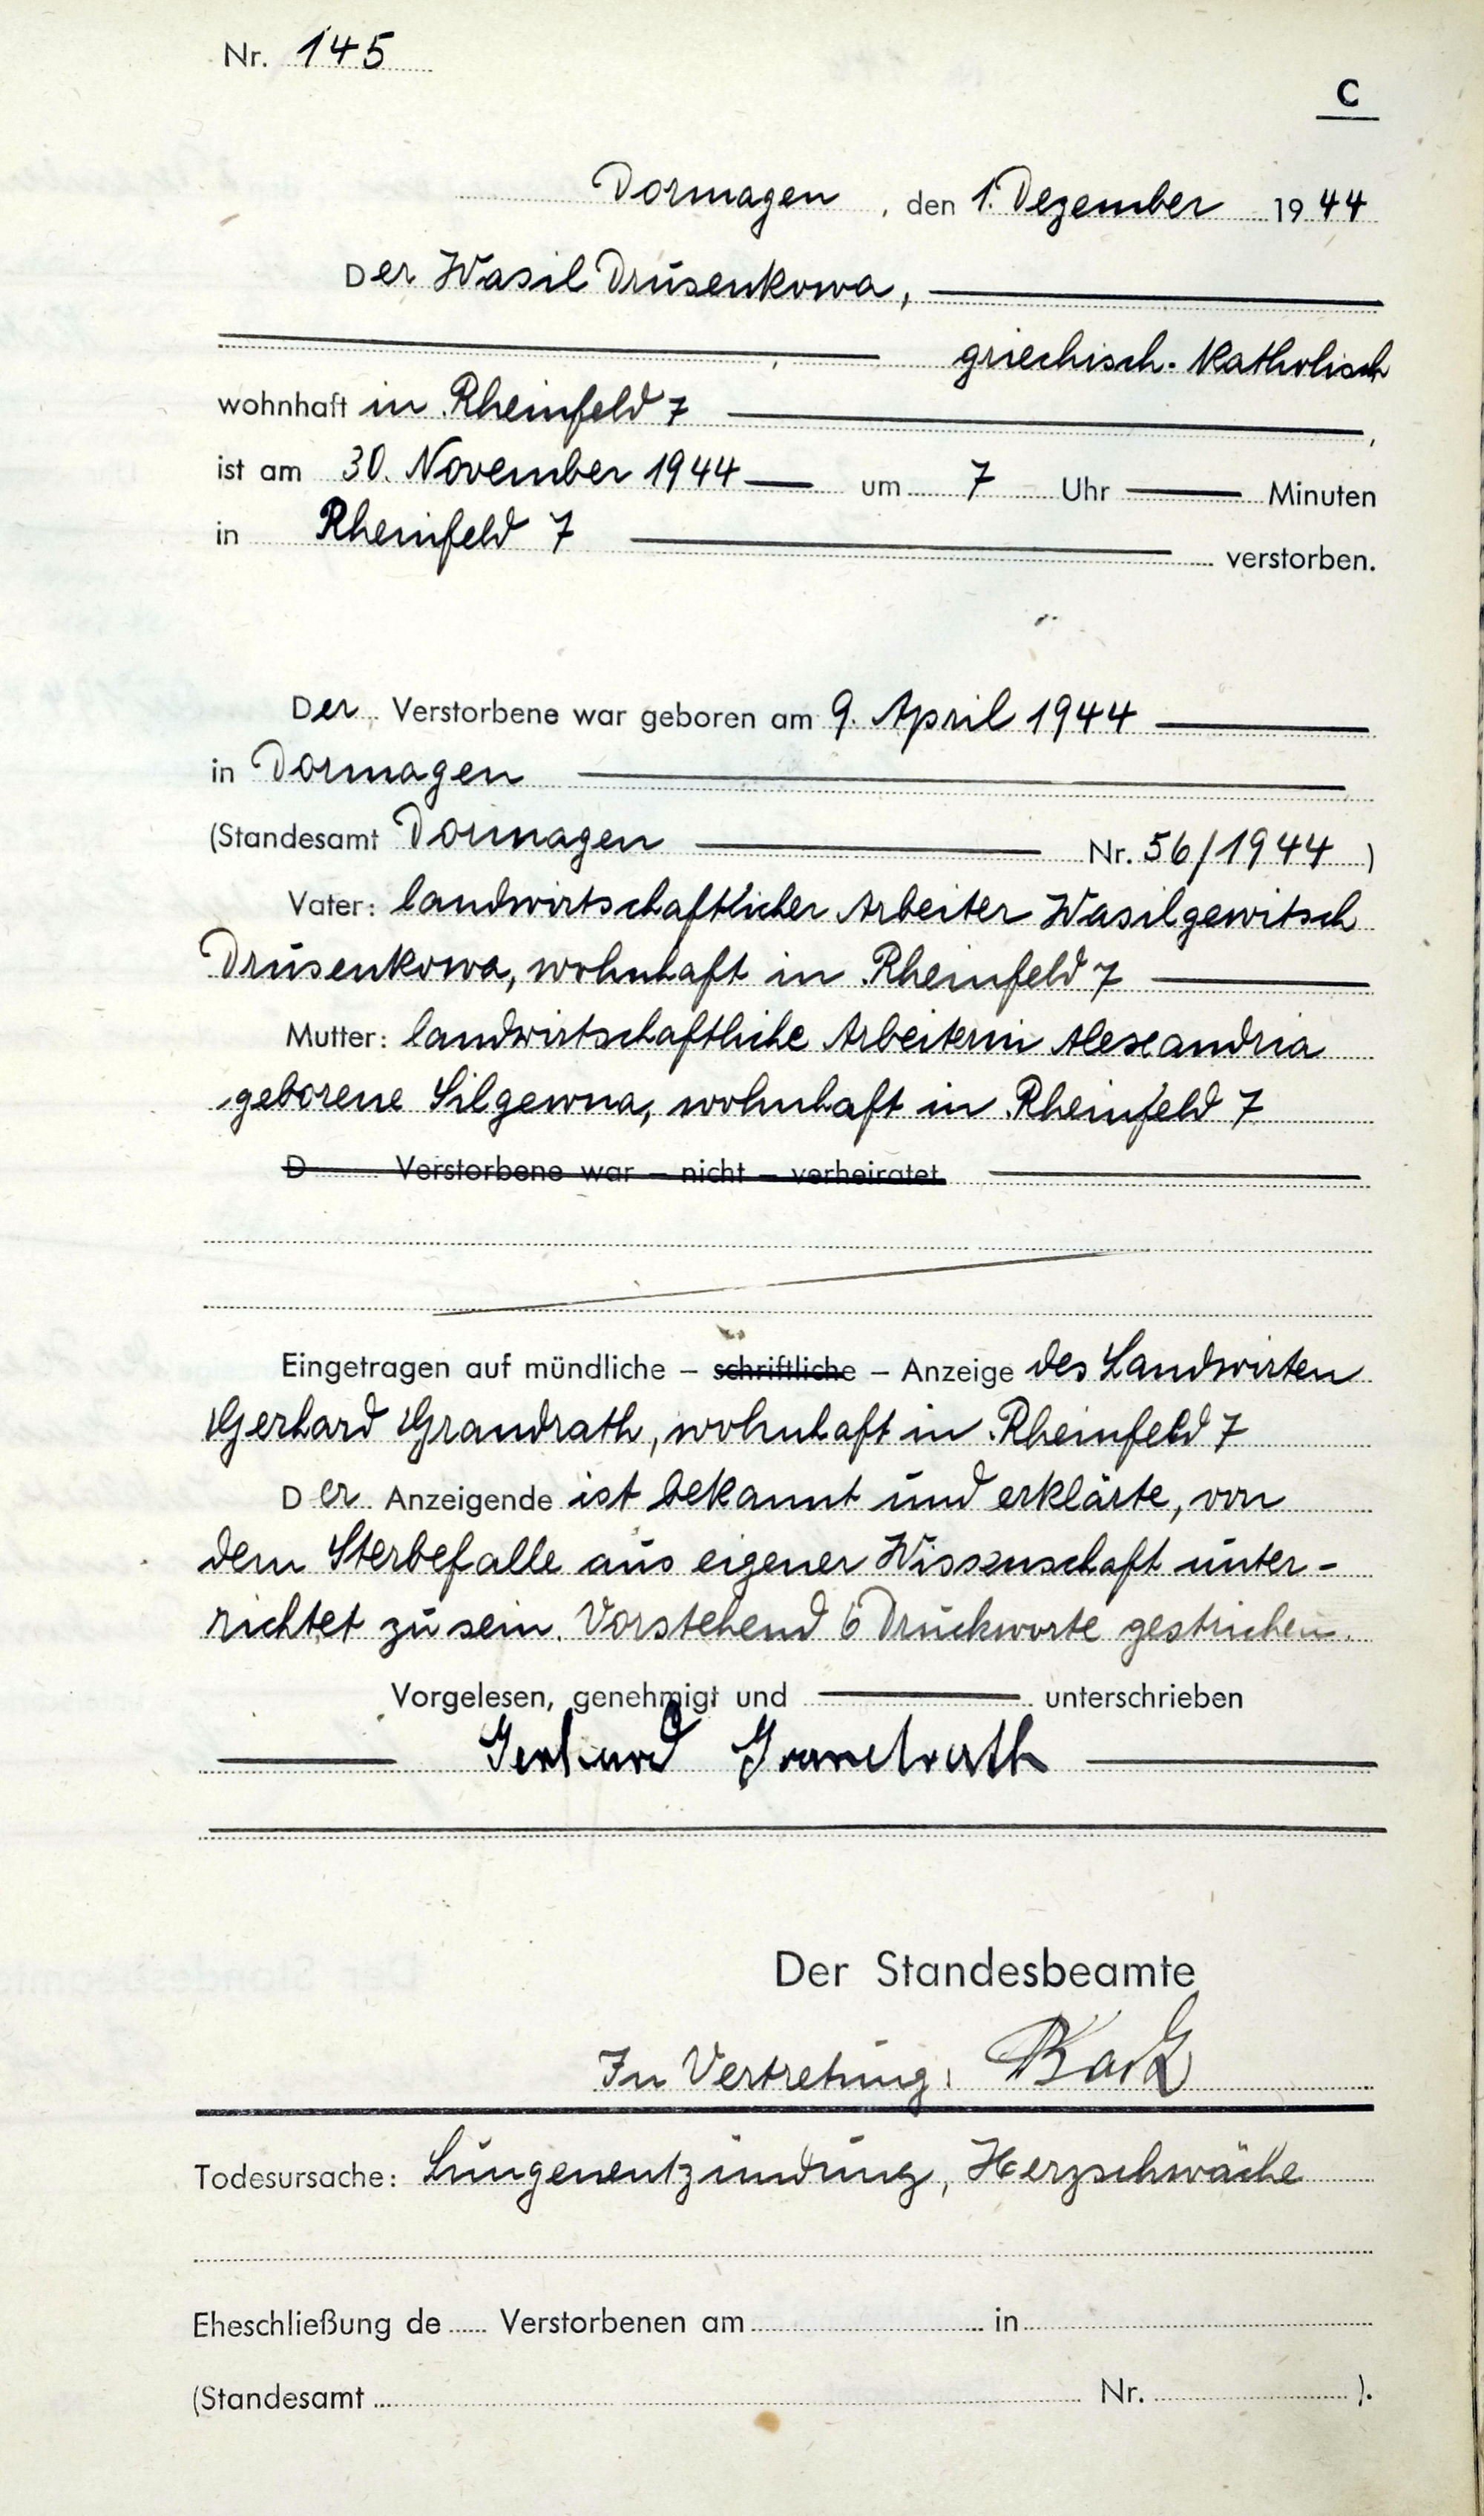 Nr. 145
C
Dormagen, den 1. Dezember 1944
Der Wasil Drusenkowa,
griechisch-katholisch
wohnhaft in Rheinfeld 7,
ist am 30. November 1944 um 7 Uhr Minuten
in Rheinfeld 7 verstorben.
Der Verstorbene war geboren am 9. April 1944
in Dormagen
(Standesamt Dormagen Nr. 56/1944)
Vater: landwirtschaftlicher Arbeiter Wasilgewitsch
Drusenkowa, wohnhaft in Rheinfeld 7
Mutter: landwirtschaftliche Arbeiterin Alexandria
geborene Silgewna, wohnhaft in Rheinfeld 7
D Verstorbene war – nicht – verheiratet
Eingetragen auf mündliche – schriftliche – Anzeige des Landwirten
Gerhard Grandrath, wohnhaft in Rheinfeld 7
Der Anzeigende ist bekannt und erklärte, von
dem Sterbefalle aus eigener Wissenschaft unter-
richtet zu sein. Vorstehend 6 Druckworte gestrichen.
Vorgelesen, genehmigt und unterschrieben
Gerhard Grandrath
Der Standesbeamte
In Vertretung:
Todesursache: Lungenentzündung, Herzschwäche
Eheschließung de Verstorbenen am in
(Standesamt Nr. ).